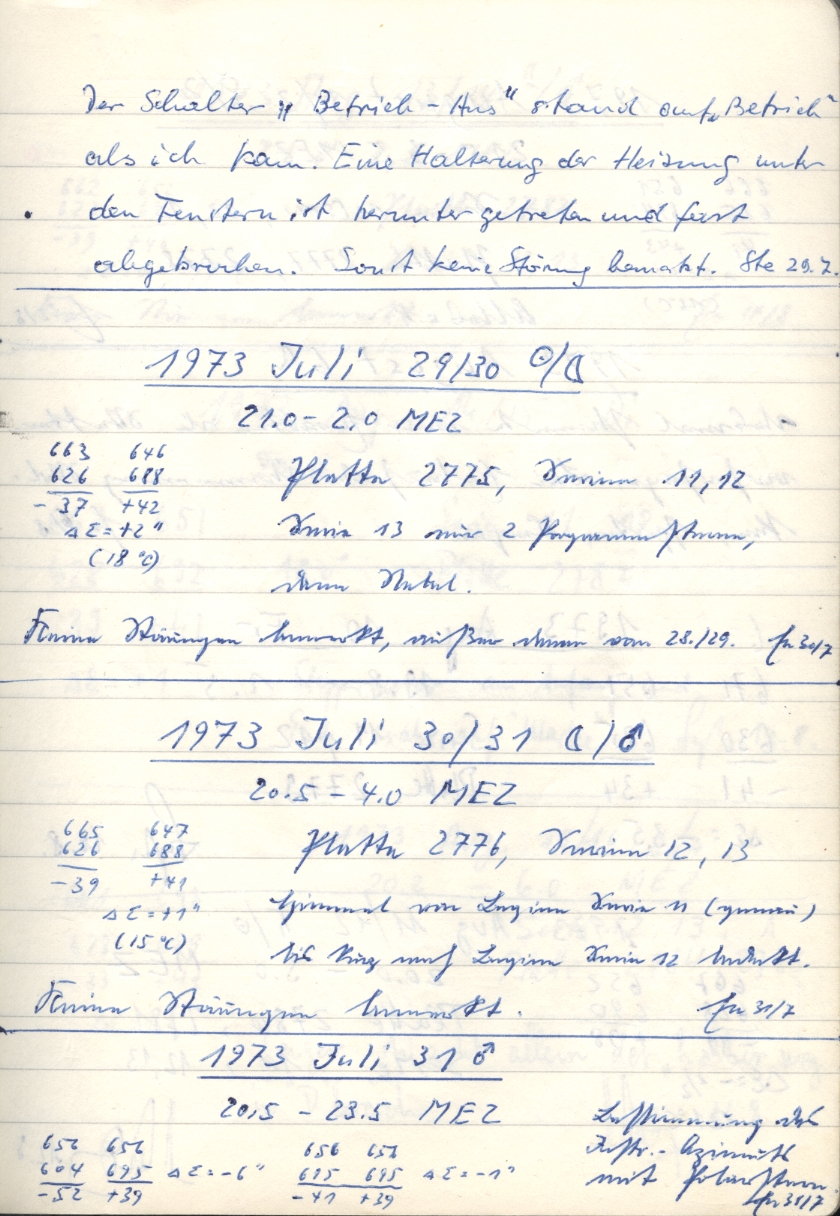 Der Schalter „Betrieb - Aus" stand auf „Betrieb"
als ich kam. Eine Halterung der Heizung unter
den Fenstern ist herunter getreten und fast
abgebrochen. Sonst keine Störung bemerkt. Ste 29.7.
1973 Juli 29/30 ☉/☾
21.0 - 2.0 MEZ
663 646
626 688
-37 +42
Δ Σ = +2"
(18 °C)
Platte 2775, Serien 11, 12
Serie 13 nur 2 Programmsterne,
dann Nebel.
Keine Störungen bemerkt, außer denen vom 28./29. 30/7
1973 Juli 30/31 ☾/♂
20.5 - 4.0 MEZ
665 647
626 688
-39 +41
Δ Σ = +1"
(15 °C)
Platte 2776, Serien 12, 13
Himmel von Beginn Serie 11 (genau)
bis kurz nach Beginn Serie 12 bedeckt.
Keine Störungen bemerkt. 31/7
1973 Juli 31 ♂
20,5 - 23.5 MEZ
656 656
604 695 Δ Σ = -6"
-52 +39
656 656
615 695 Δ Σ = -1"
-41 +39
Bestimmung des
Instr.- Azimuts
mit Polarstern.
31/7